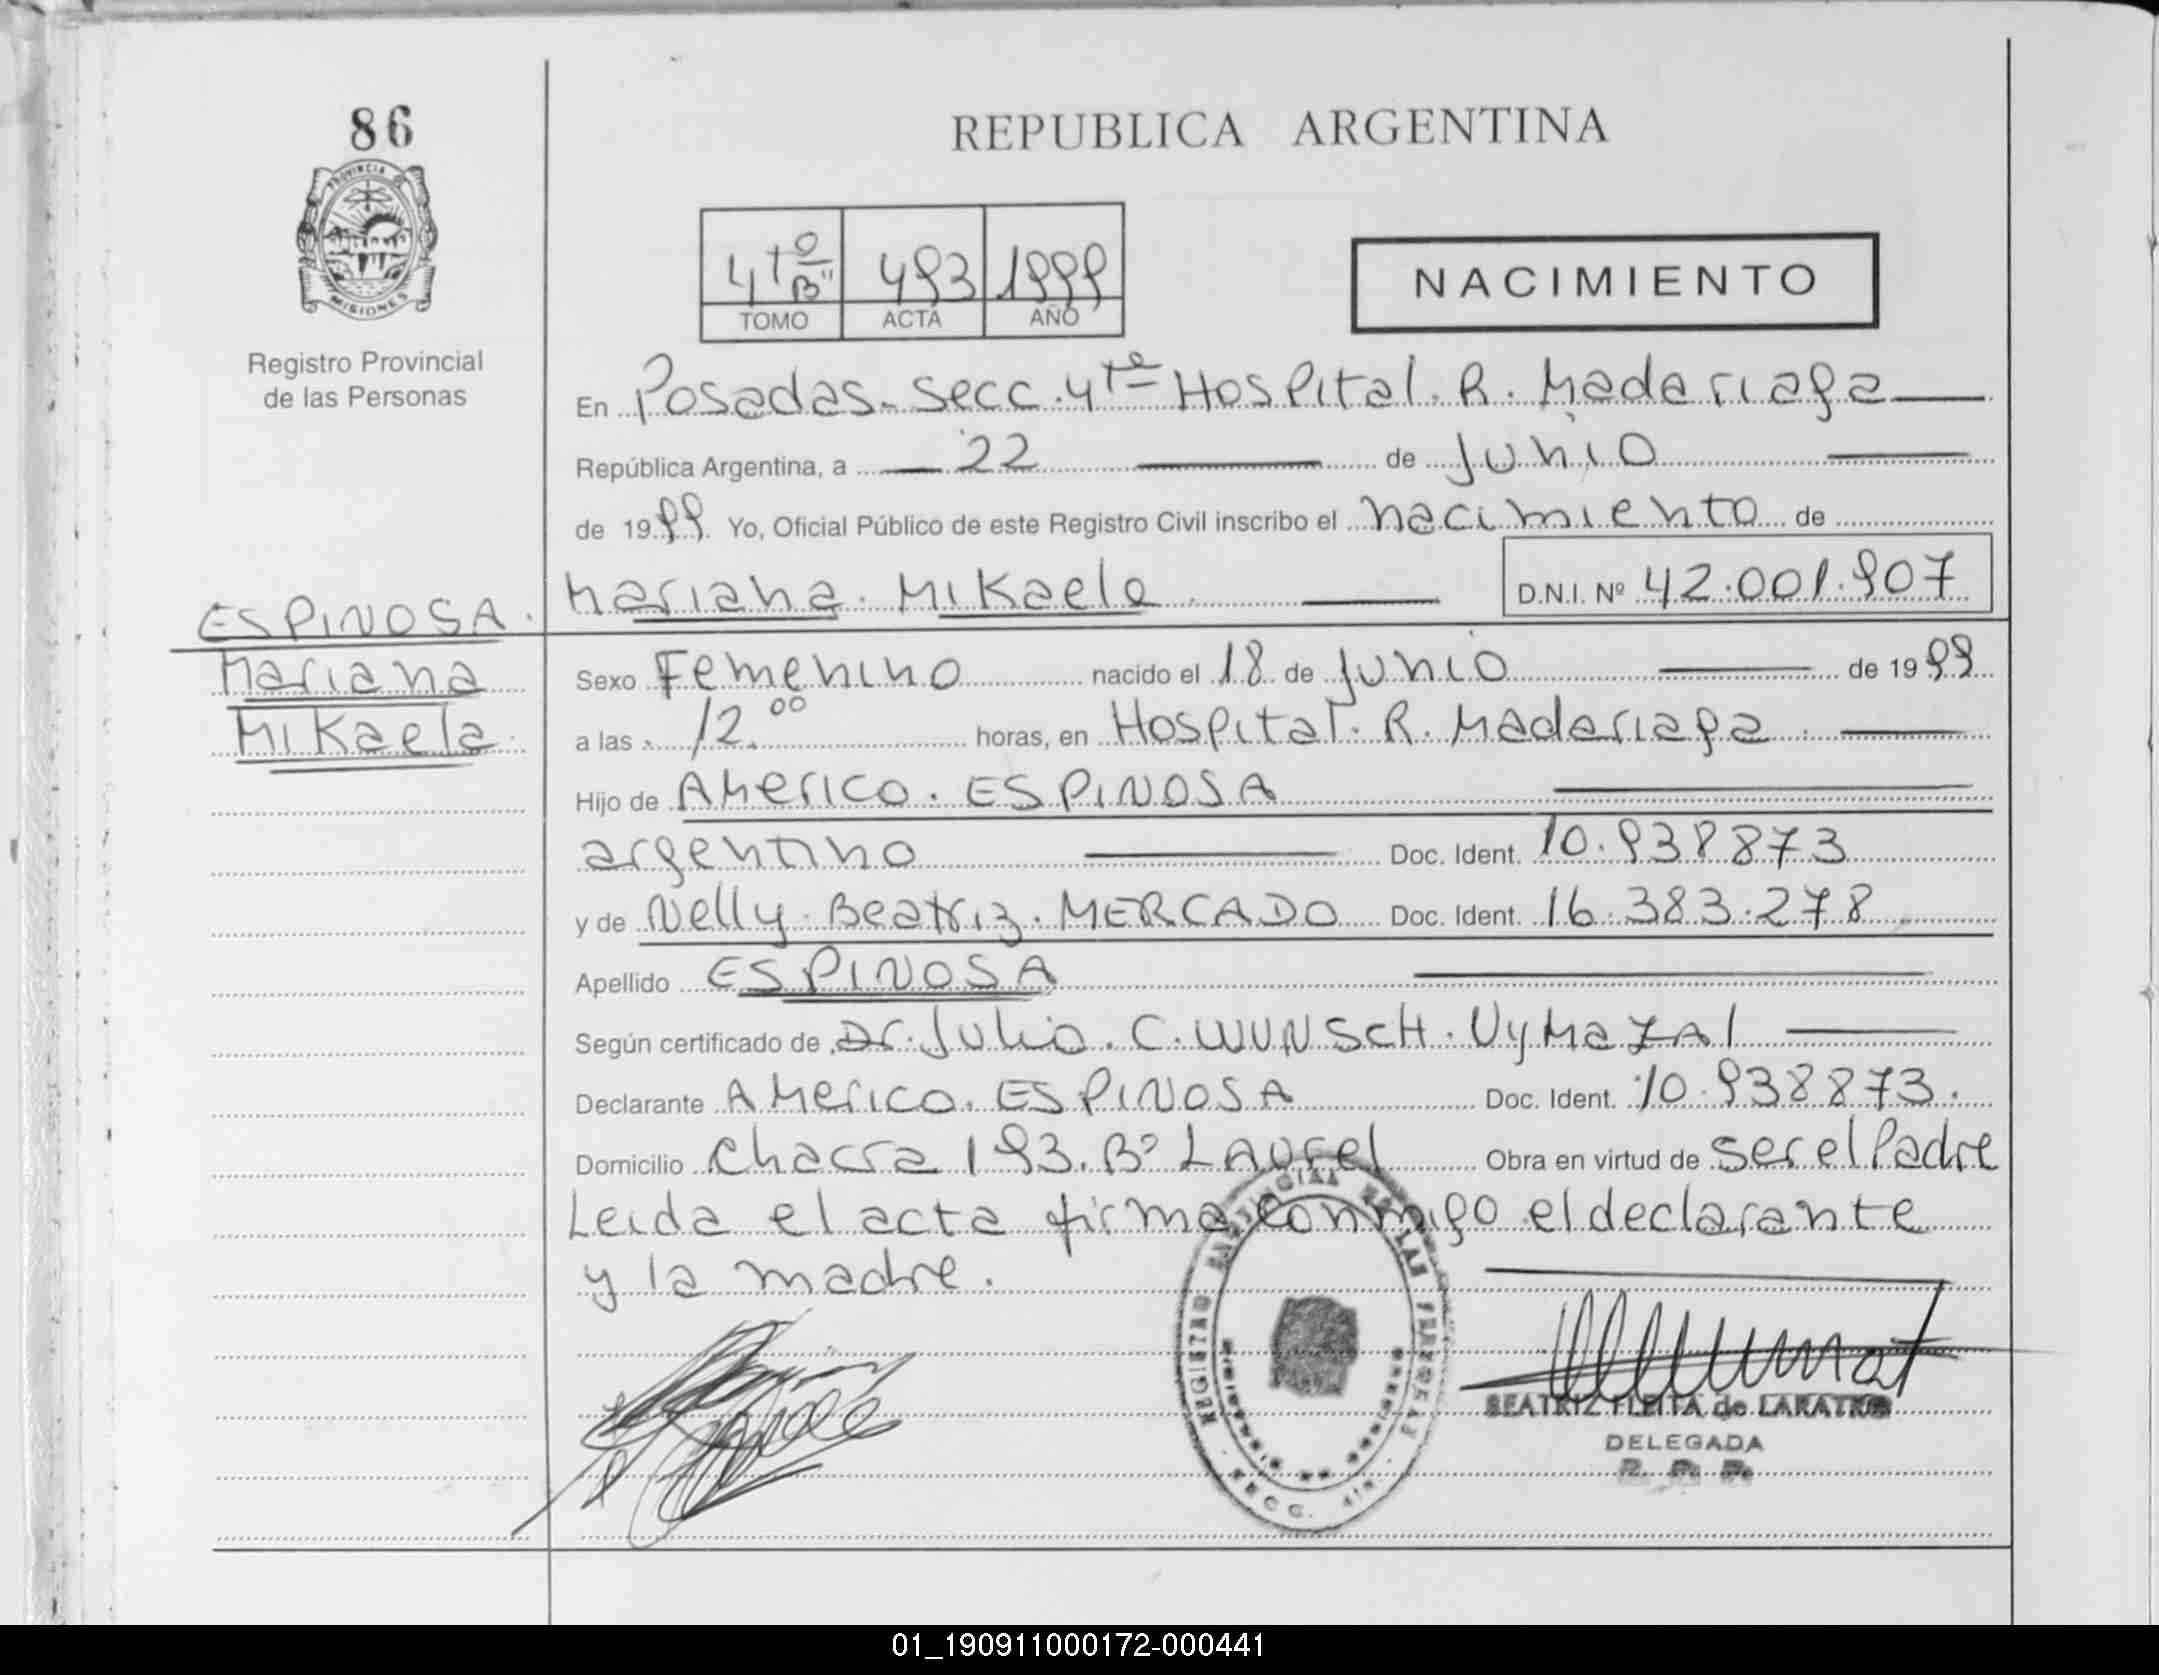 86
PROVINCIA DE
MISIONES
Registro Provincial
de las Personas
ESPINOSA.
Mariana
Mikaela
REPUBLICA ARGENTINA
4to "B" 493 1999
TOMO ACTA AÑO
NACIMIENTO
En Posadas. Secc. 4ta Hospital. R. Madariaga
República Argentina, a 22 de Junio
de 1999. Yo, Oficial Público de este Registro Civil inscribo el nacimiento de
Mariana. Mikaela D.N.I. Nº 42.001.907
Sexo Femenino nacido el 18 de Junio de 1999
a las 12.00 horas, en Hospital. R. Madariaga
Hijo de Americo. ESPINOSA
argentino Doc. Ident. 10.938873
y de Nelly Beatriz. MERCADO Doc. Ident. 16.383.278
Apellido ESPINOSA
Según certificado de Dr. Julio. C. WUNSCH. VyMaZAl
Declarante Americo. ESPINOSA Doc. Ident. 10.938873.
Domicilio Chacra 193. Bº LAUrel Obra en virtud de ser el Padre
Leida el acta firma conmigo el declarante
y la madre.
REGISTRO PROVINCIAL DE LAS PERSONAS
SECC. 4ta.
BEATRIZ FLEITA de LARATRO
DELEGADA
R. P. P.
01_190911000172-000441